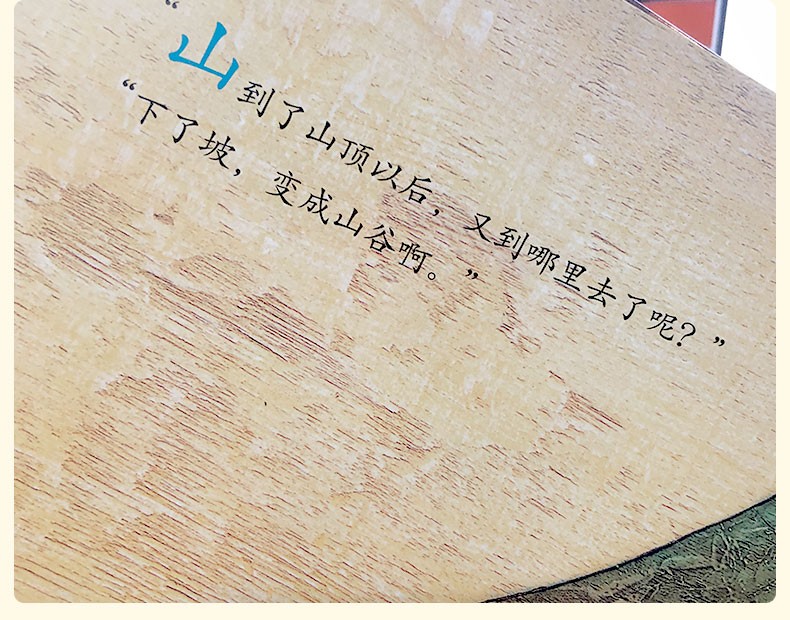 “山到了山顶以后，又到哪里去了呢？”
“下了坡，变成山谷啊。”